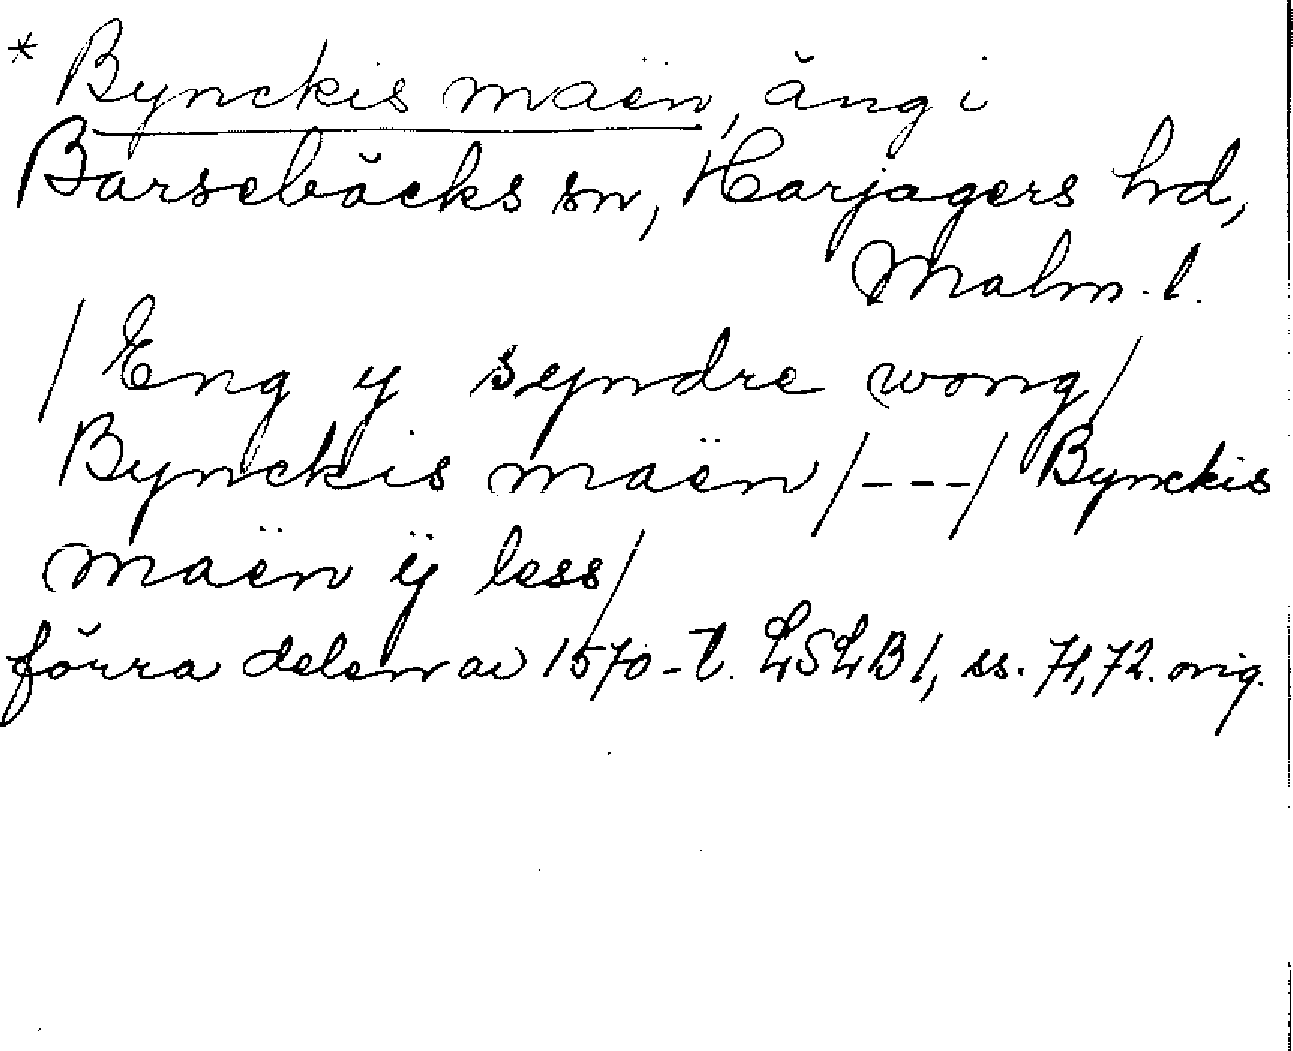 * Bynckis maën, äng i
Barsebäcks sn, Harjagers hd,
Malm. l.
/Eng y syndre wong/
Bynckis maën /---/ Bynckis
maën ÿ less/
förra delen av 1570-t. LSLB 1, ss. 71, 72. orig.